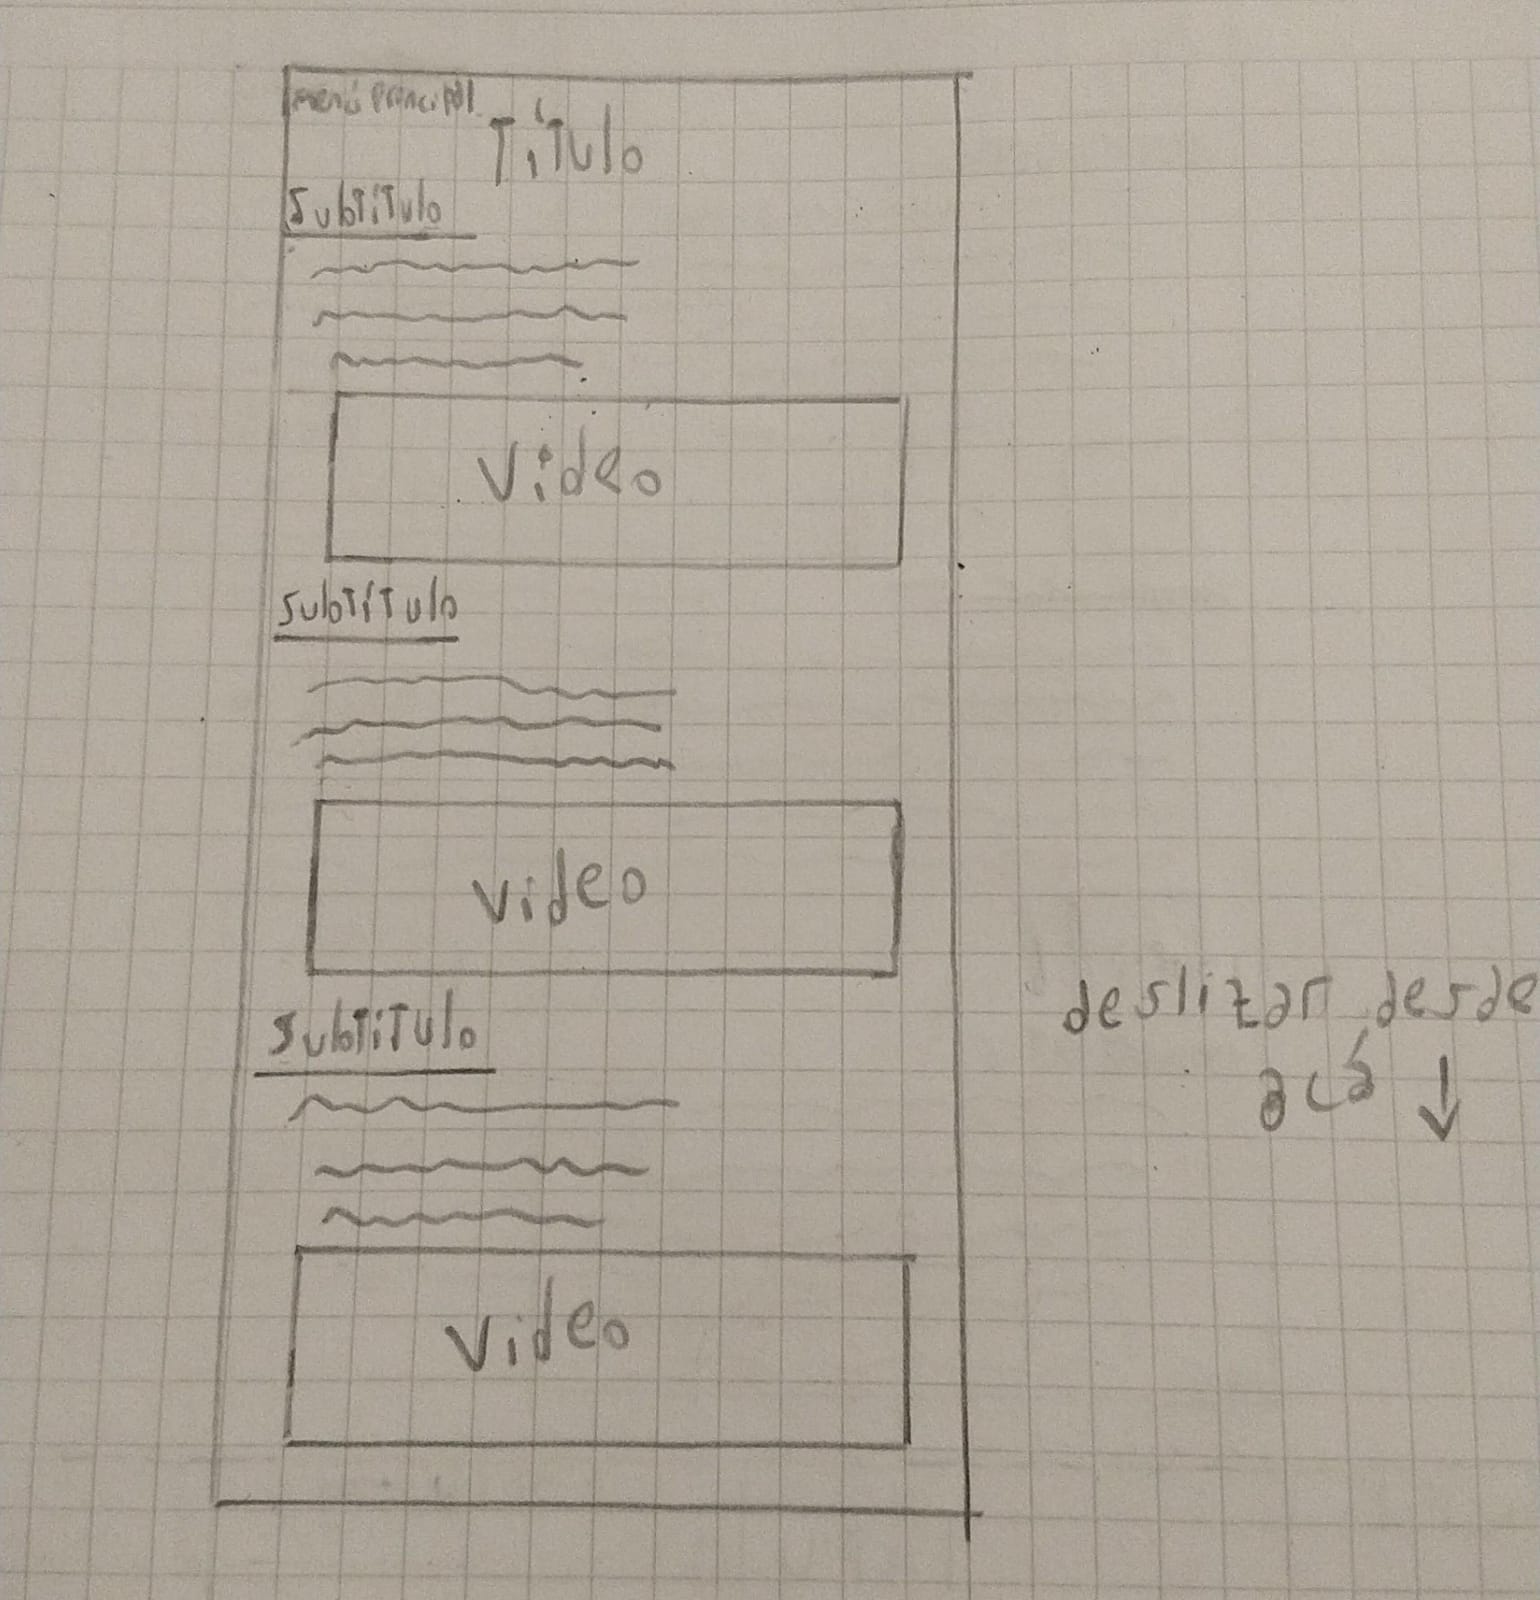 menú principal
Título
Subtítulo
Video
Subtítulo
video
Subtitulo
deslizar desde
acá ↓
Video